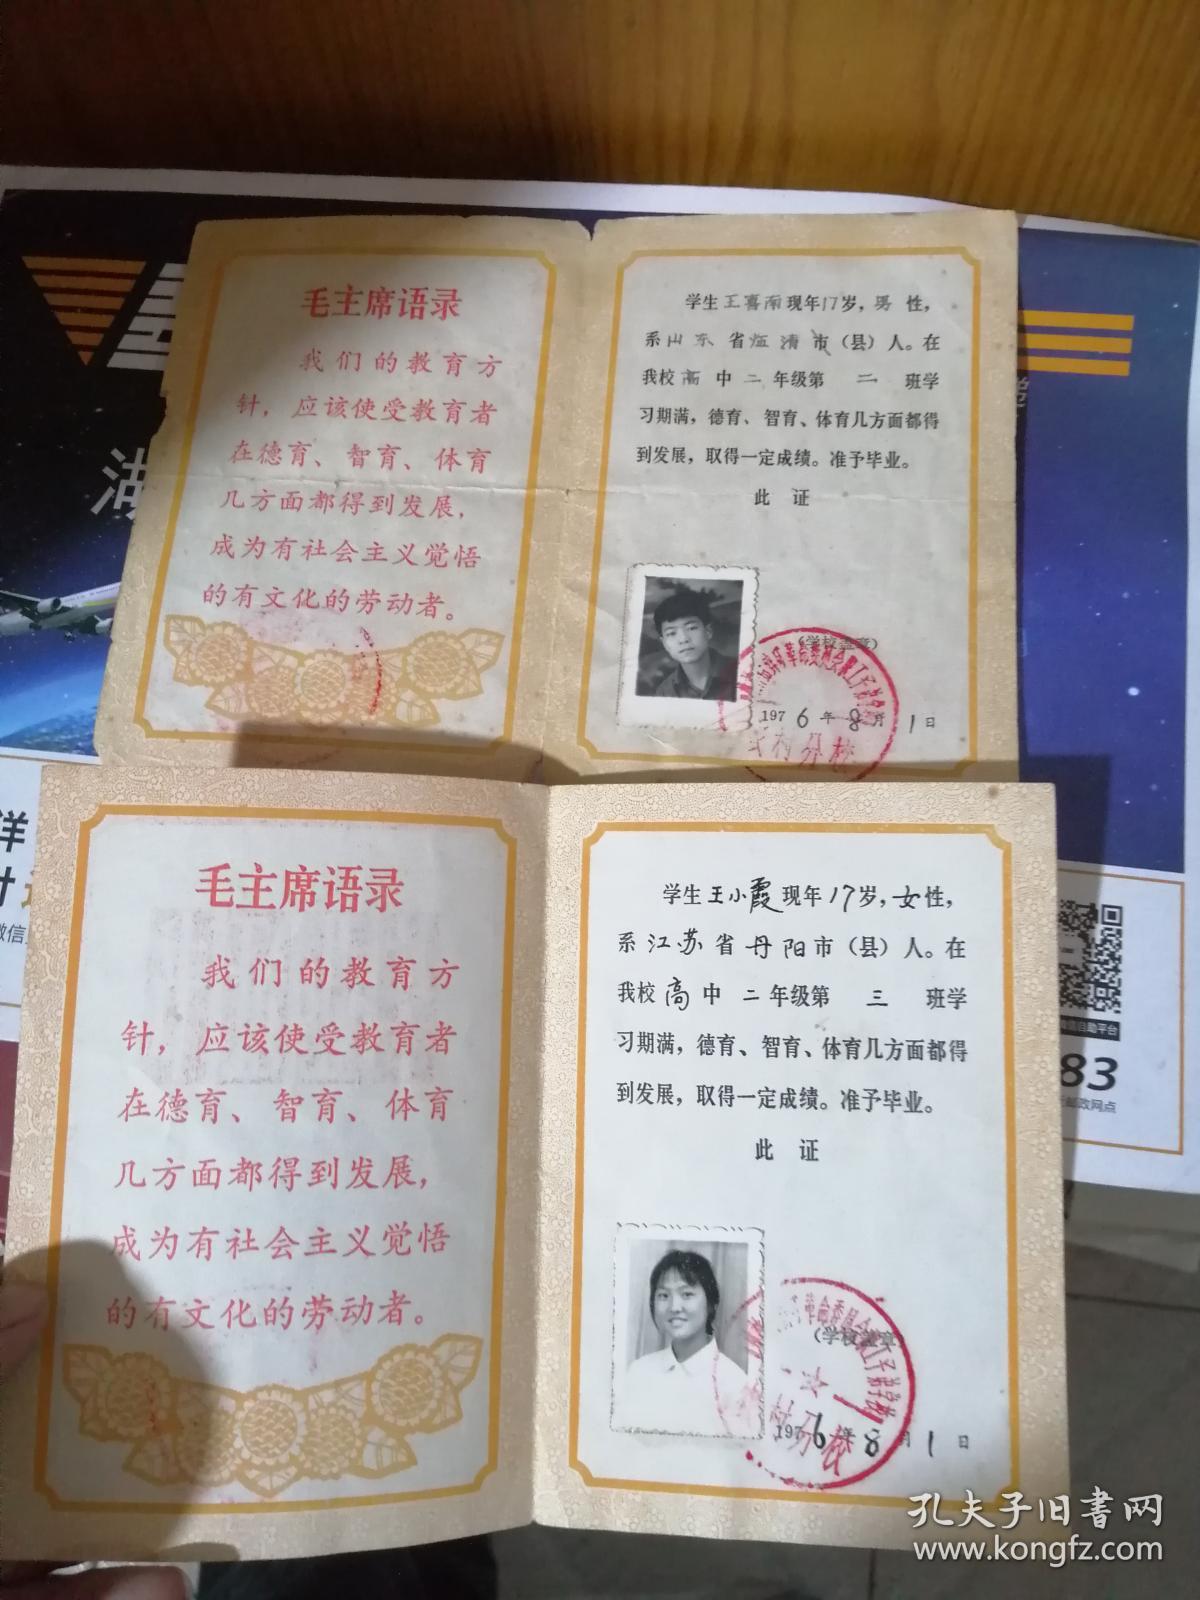 毛主席语录
我们的教育方
针，应该使受教育者
在德育、智育、体育
几方面都得到发展，
成为有社会主义觉悟
的有文化的劳动者。
学生王喜南现年17岁，男性，
系山东省临清市（县）人。在
我校高中二年级第二班学
习期满，德育、智育、体育几方面都得
到发展，取得一定成绩。准予毕业。
此证
（学校盖章）
1976年8月1日
分校
毛主席语录
我们的教育方
针，应该使受教育者
在德育、智育、体育
几方面都得到发展，
成为有社会主义觉悟
的有文化的劳动者。
学生王小霞现年17岁，女性，
系江苏省丹阳市（县）人。在
我校高中二年级第三班学
习期满，德育、智育、体育几方面都得
到发展，取得一定成绩。准予毕业。
此证
革命委员会职工子弟学校
（学校盖章）
1976年8月1日
村分校
湖
洋
微信
微信自助平台
83
邮政网点
孔夫子旧书网
www.kongfz.com